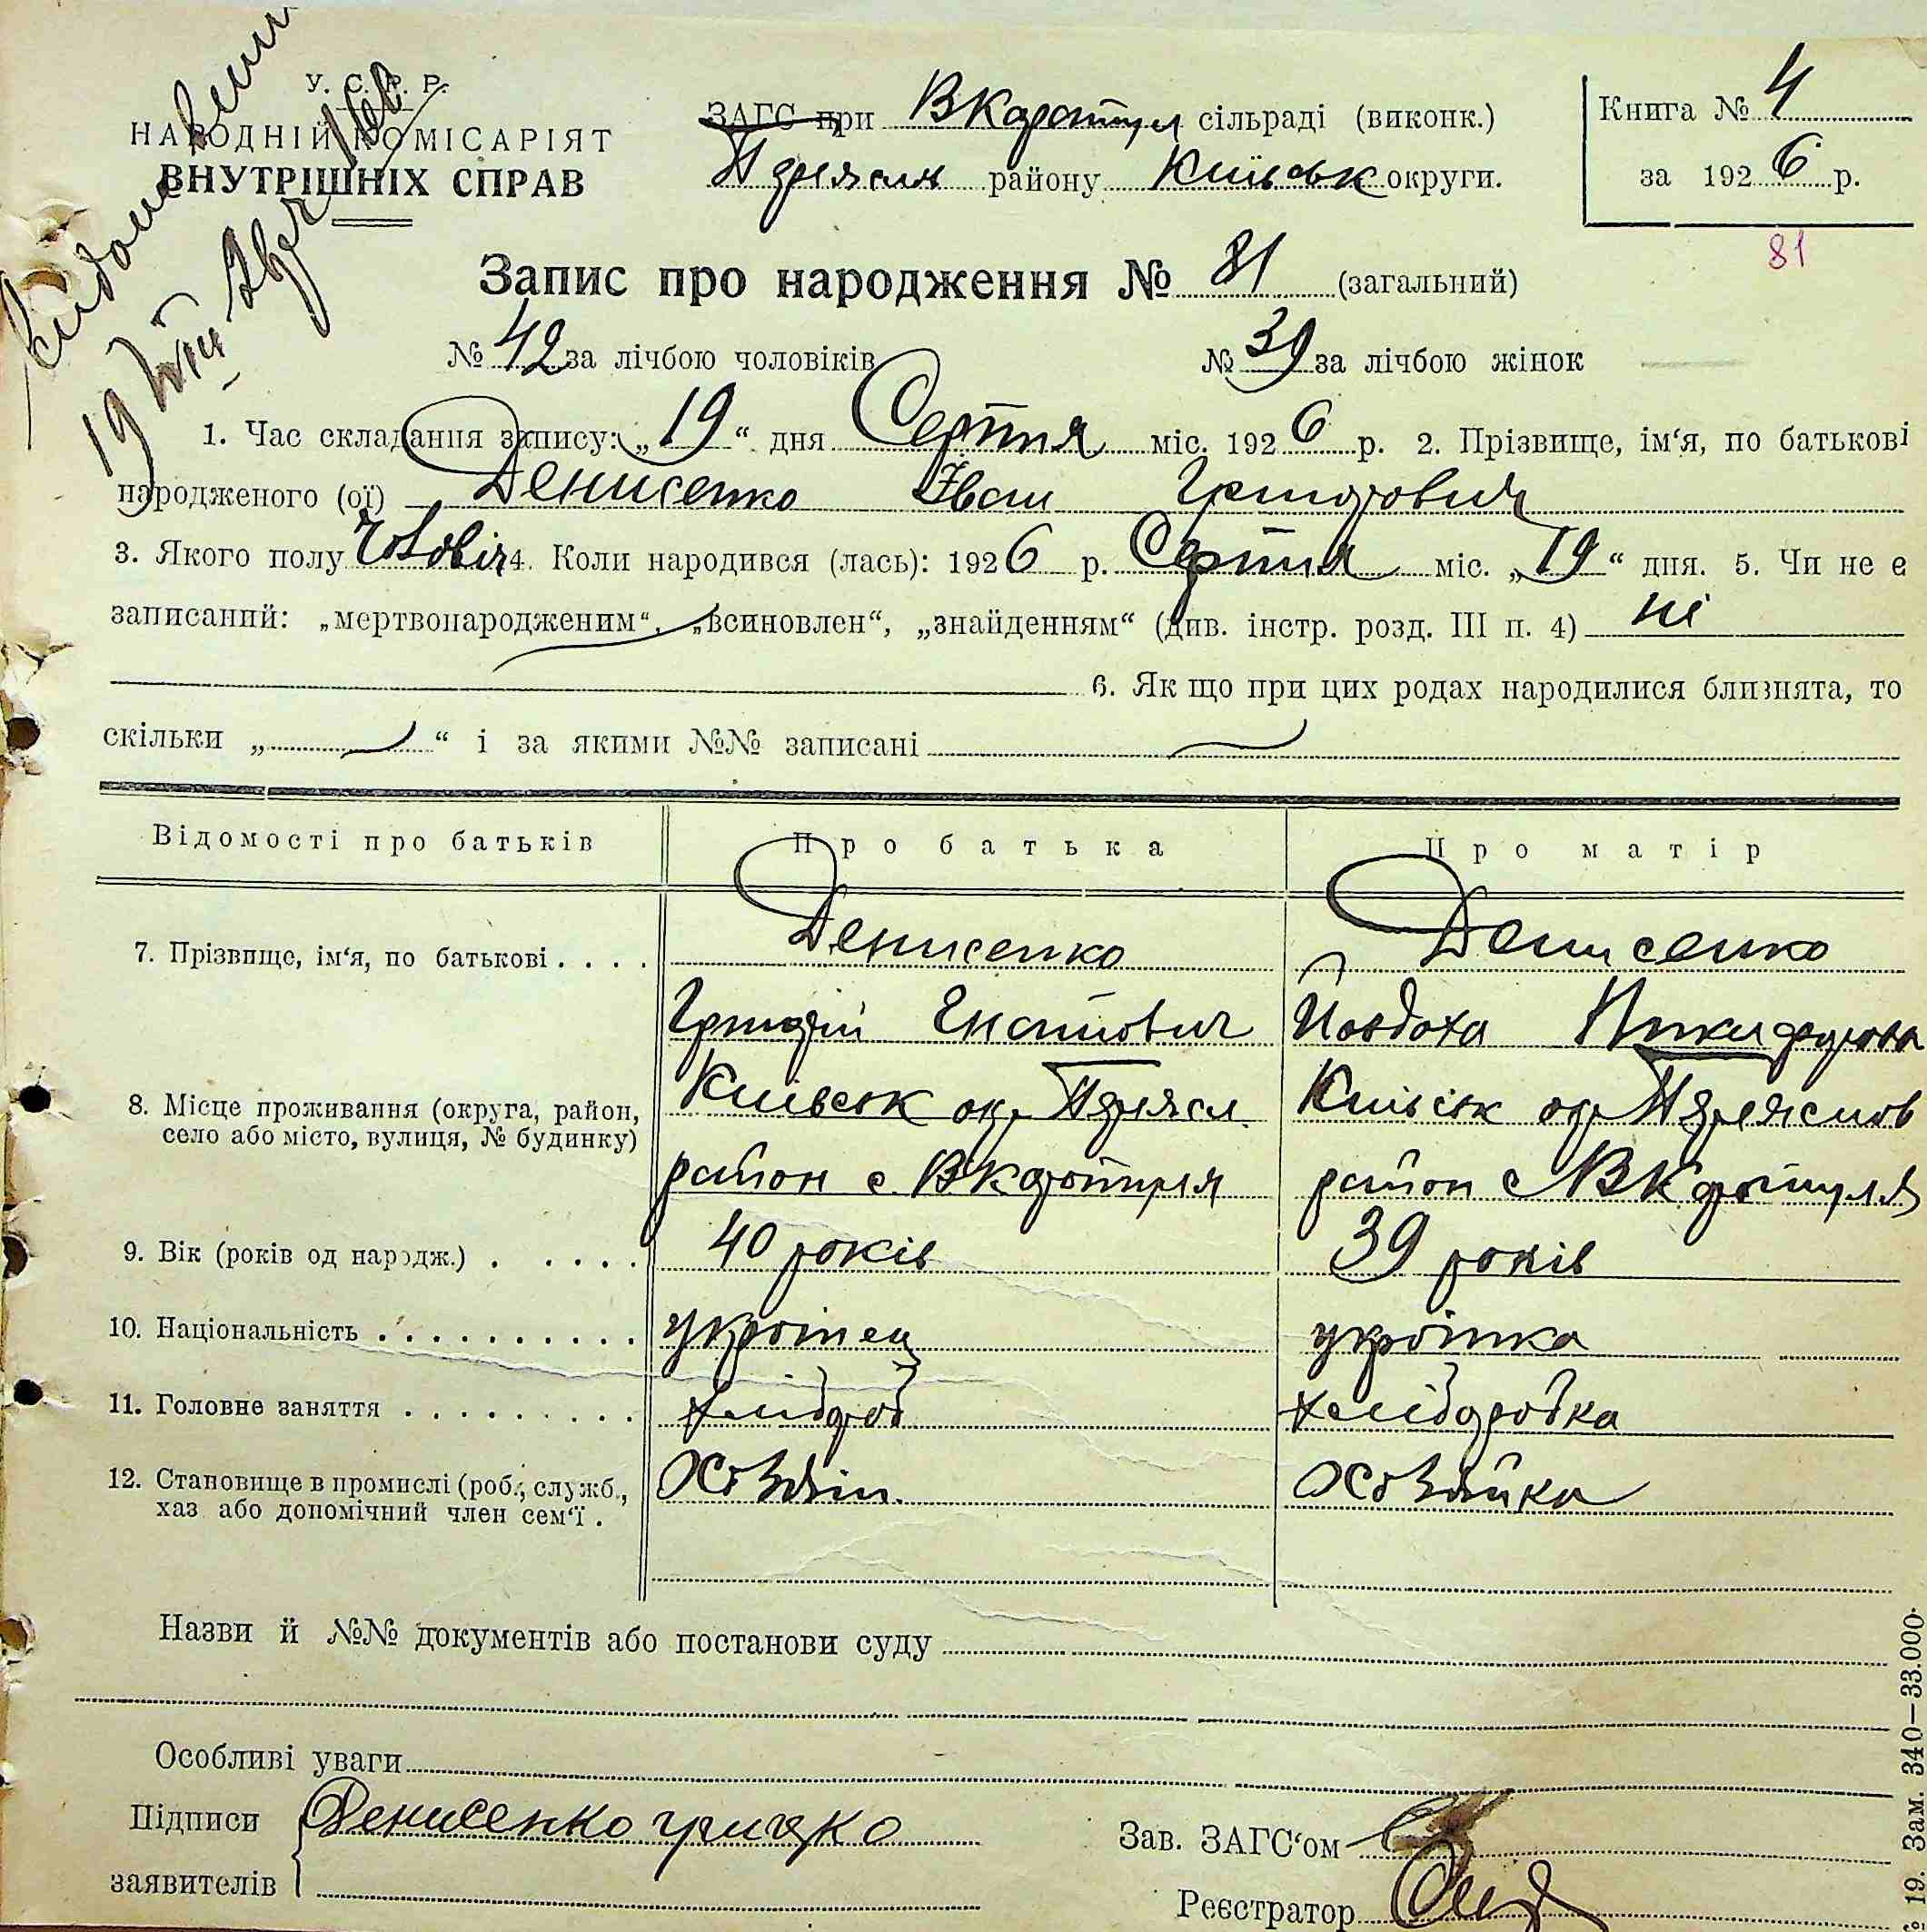 У. С. Р. Р.
НАРОДНІЙ КОМІСАРІЯТ
ВНУТРІШНІХ СПРАВ
ЗАГС при В Каратул сільраді (виконк.)
Переясл району Київськ округи.
Книга № 4
за 1926 р.
81
Запис про народження № 81 (загальний)
№ 42 за лічбою чоловіків № 39 за лічбою жінок
1. Час складання запису: „19“ дня Серпня міс. 1926 р. 2. Прізвище, ім‘я, по батькові
народженого (ої) Денисенко Іван Григорович
3. Якого полу Чоловіч 4. Коли народився (лась): 1926 р. Серпня міс. „19“ дня. 5. Чи не є
записаний: „мертвонародженим“, „всиновлен“, „знайденням“ (див. інстр. розд. III п. 4) ні
6. Як що при цих родах народилися близнята, то
скільки „ “ і за якими №№ записані
Відомості про батьків Про батька Про матір
7. Прізвище, ім‘я, по батькові . . . . Денисенко Денисенко
Григорій Гнатович Йовдоха Никифорова
8. Місце проживання (округа, район, Київськ окр Переясл Київськ окр Переяслов
село або місто, вулиця, № будинку)
район с. В Каратуля район с В Каратуля
9. Вік (років од народж.) . . . . . 40 років 39 років
10. Національність . . . . . . . . . . украінец украінка
11. Головне заняття . . . . . . . . . хлібороб хліборобка
12. Становище в промислі (роб., служб., Хозяін Хозяйка
хаз або допомічний член сем‘ї .
Назви й №№ документів або постанови суду
Особливі уваги
Підписи Денисенко григорко
заявителів
Зав. ЗАГС‘ом
Реєстратор
19. Зам. 340—33.000.